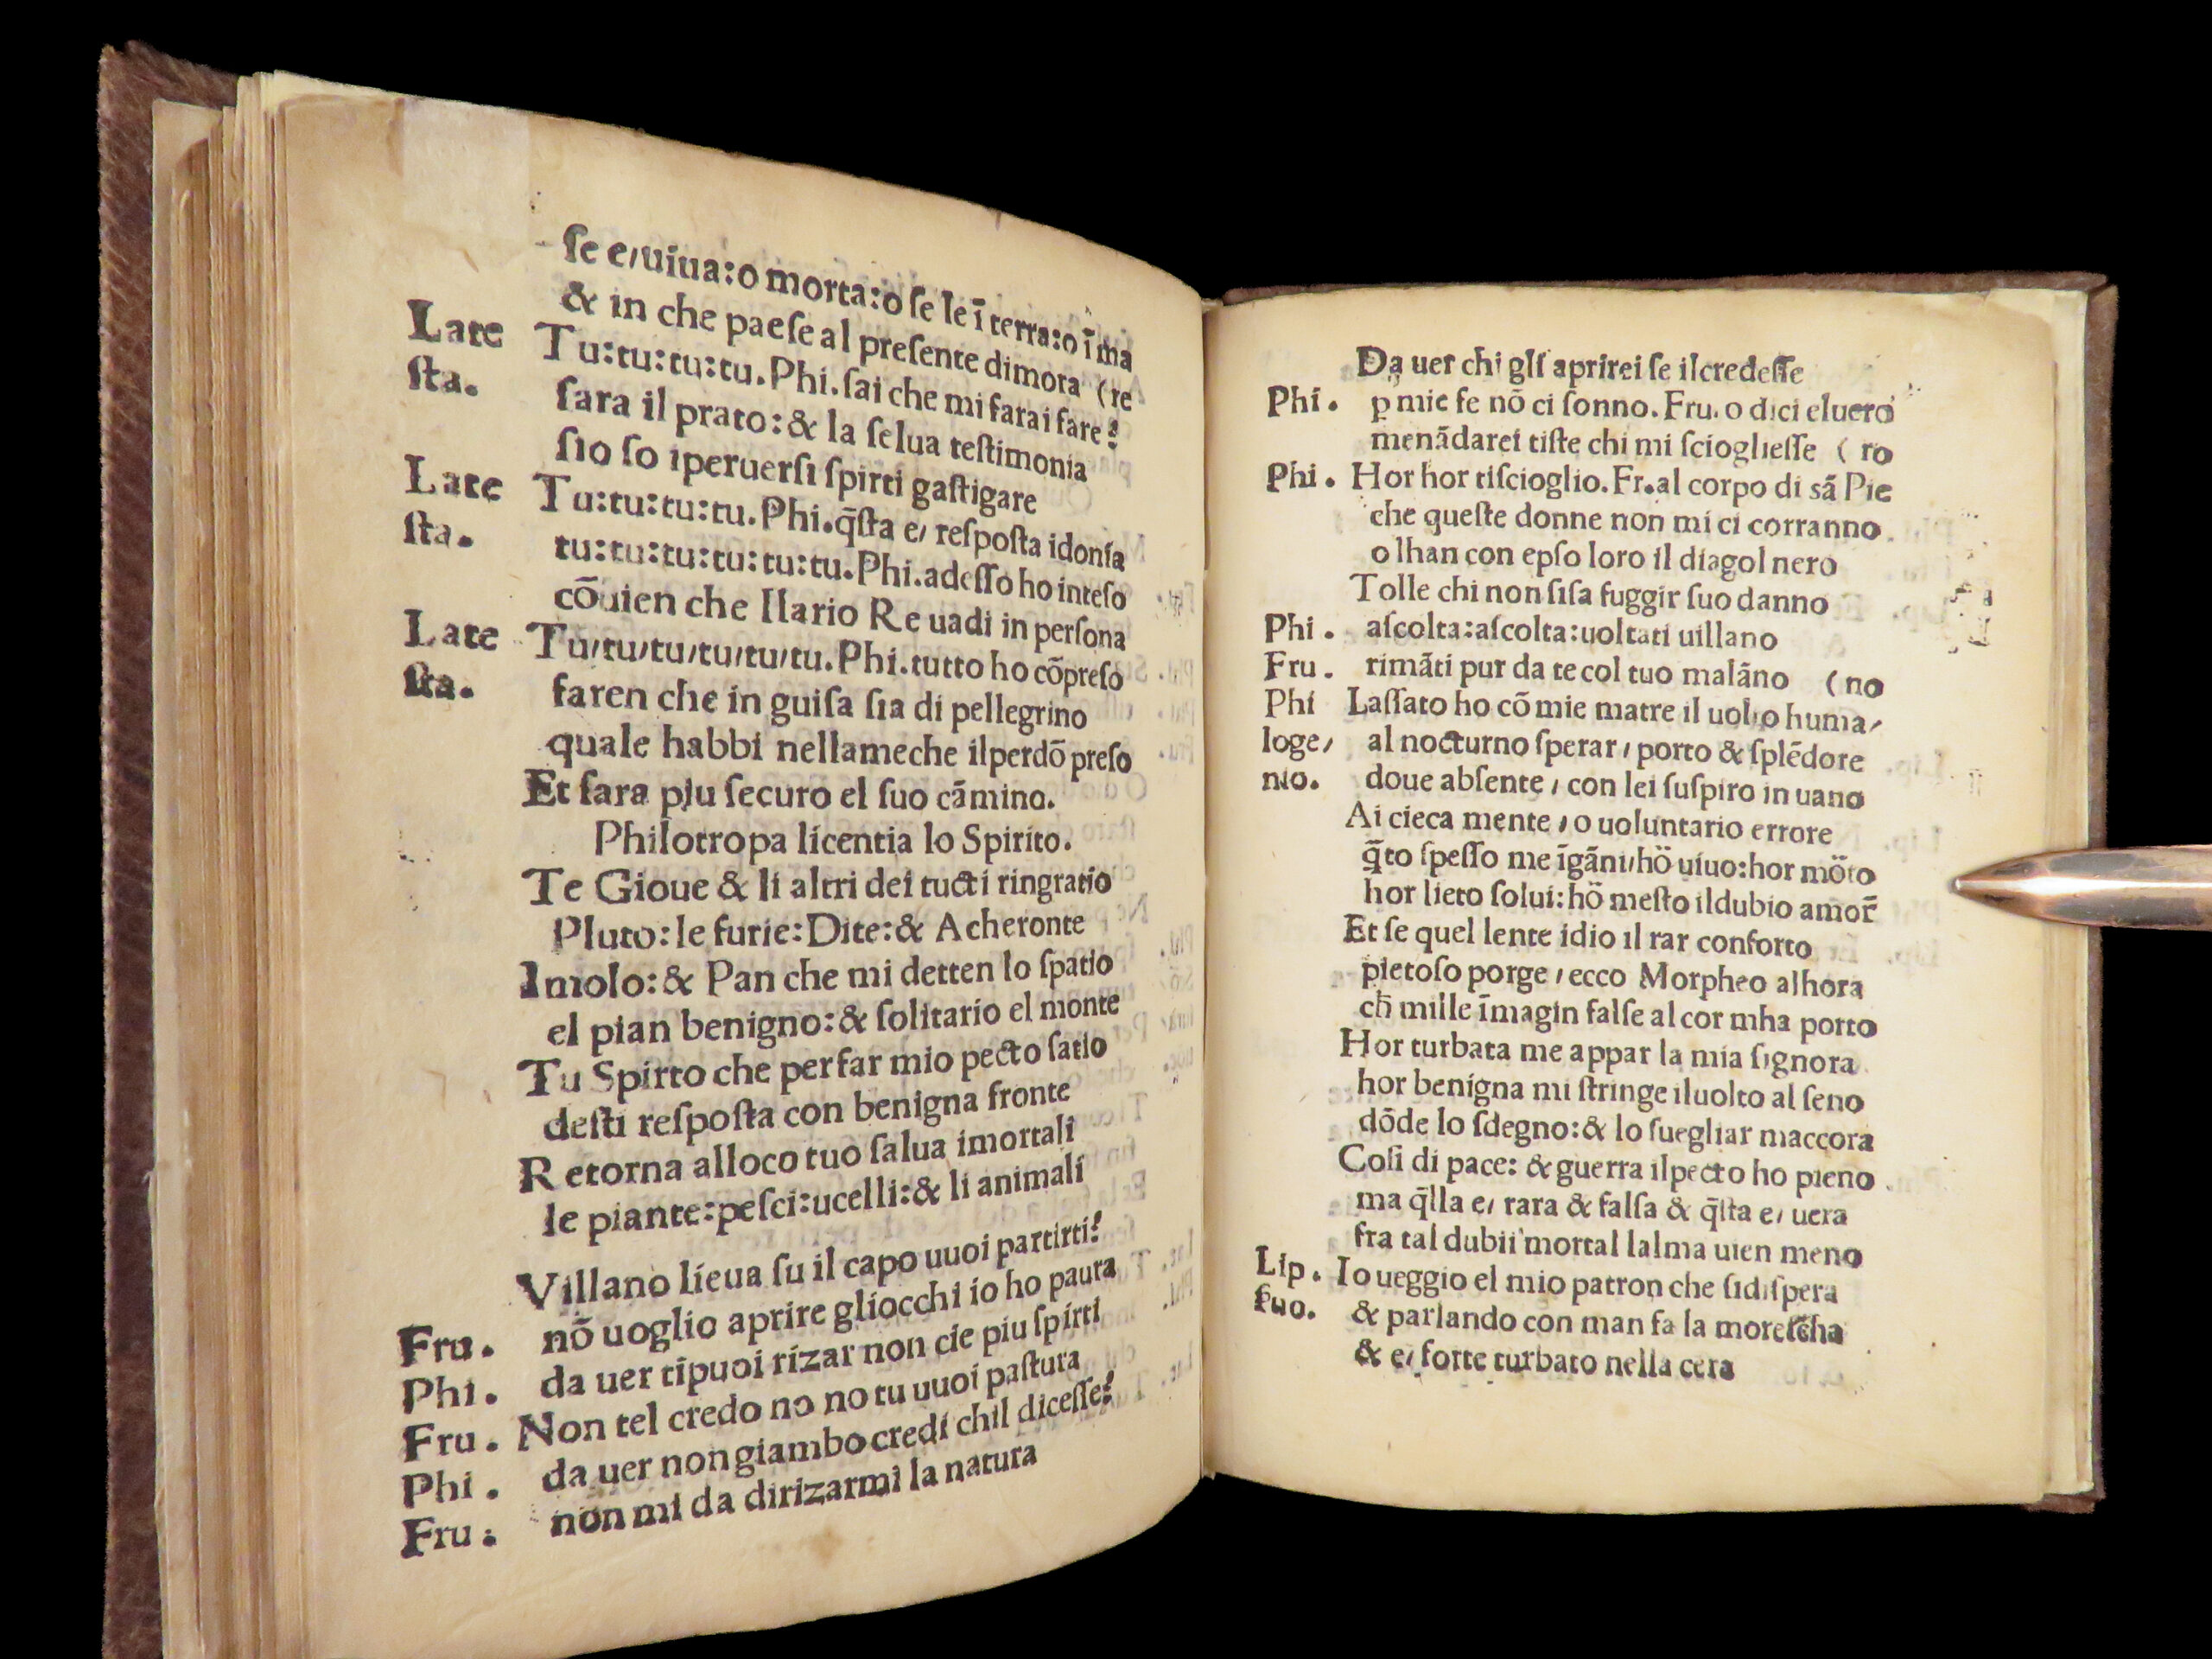 ſe e/uiua:o morta:o ſe le ī terra:o ī ma
& in che paeſe al preſente dimora (re
Late Tu:tu:tu:tu. Phi. ſai che mi farai fare?
ſta. ſara il prato:& la ſelua teſtimonia
ſio ſo iperuerſi ſpirti gaſtigare
Late Tu:tu:tu:tu. Phi. q̄ſta e/ reſpoſta idonia
ſta. tu:tu:tu:tu:tu:tu. Phi. adeſſo ho inteſo
cōuien che Ilario Re uadi in perſona
Late Tu/tu/tu/tu/tu/tu. Phi. tutto ho cōpreſo
ſta. faren che in guiſa ſia di pellegrino
quale habbi nellameche ilperdō preſo
Et ſara piu ſecuro el ſuo cāmino.
Philotropa licentia lo Spirito.
Te Gioue & li altri dei tucti ringratio
Pluto:le furie:Dite:& Acheronte
Imolo:& Pan che mi detten lo ſpatio
el pian benigno:& ſolitario el monte
Tu Spirto che per far mio pecto ſatio
deſti reſpoſta con benigna fronte
Retorna alloco tuo ſalua imortali
le piante:peſci:ucelli:& li animali
Villano lieua ſu il capo uuoi partirti?
Fru. nō uoglio aprire gliocchi io ho paura
Phi. da uer tipuoi rizar non cie piu ſpirti
Fru. Non tel credo no no tu uuoi paſtura
Phi. da uer non giambo credi chil diceſſe?
Fru. non mi da dirizarmi la natura
Da uer chi gli aprirei ſe ilcredeſſe
Phi. ꝑ mie fe nō ci ſonno. Fru. o dici eluero
menādarei tiſte chi mi ſcioglieſſe ( ro
Phi. Hor hor tiſcioglio. Fr. al corpo di sā Pie
che queſte donne non mi ci corranno
o lhan con epſo loro il diagol nero
Tolle chi non ſiſa fuggir ſuo danno
Phi. aſcolta:aſcolta:uoltati uillano
Fru. rimāti pur da te col tuo malāno (no
Phi Laſſato ho cō mie matre il uolto huma/
loge/ al nocturno ſperar / porto & ſplēdore
nio. doue abſente / con lei ſuſpiro in uano
Ai cieca mente / o uoluntario errore
q̄to ſpeſſo me īgāni/hō uiuo:hor mōto
hor lieto ſolui:hō meſto ildubio amor̄
Et ſe quel lente idio il rar conforto
pietoſo porge / ecco Morpheo alhora
ch̄ mille īmagin falſe al cor mha porto
Hor turbata me appar la mia ſignora
hor benigna mi ſtringe iluolto al ſeno
dōde lo ſdegno:& lo ſuegliar maccora
Coſi di pace: & guerra ilpecto ho pieno
ma q̄lla e/ rara & falſa & q̄ſta e/ uera
fra tal dubii mortal lalma uien meno
Lip. Io ueggio el mio patron che ſidiſpera
ſuo. & parlando con man fa la moreſcha
& e/ forte turbato nella cera